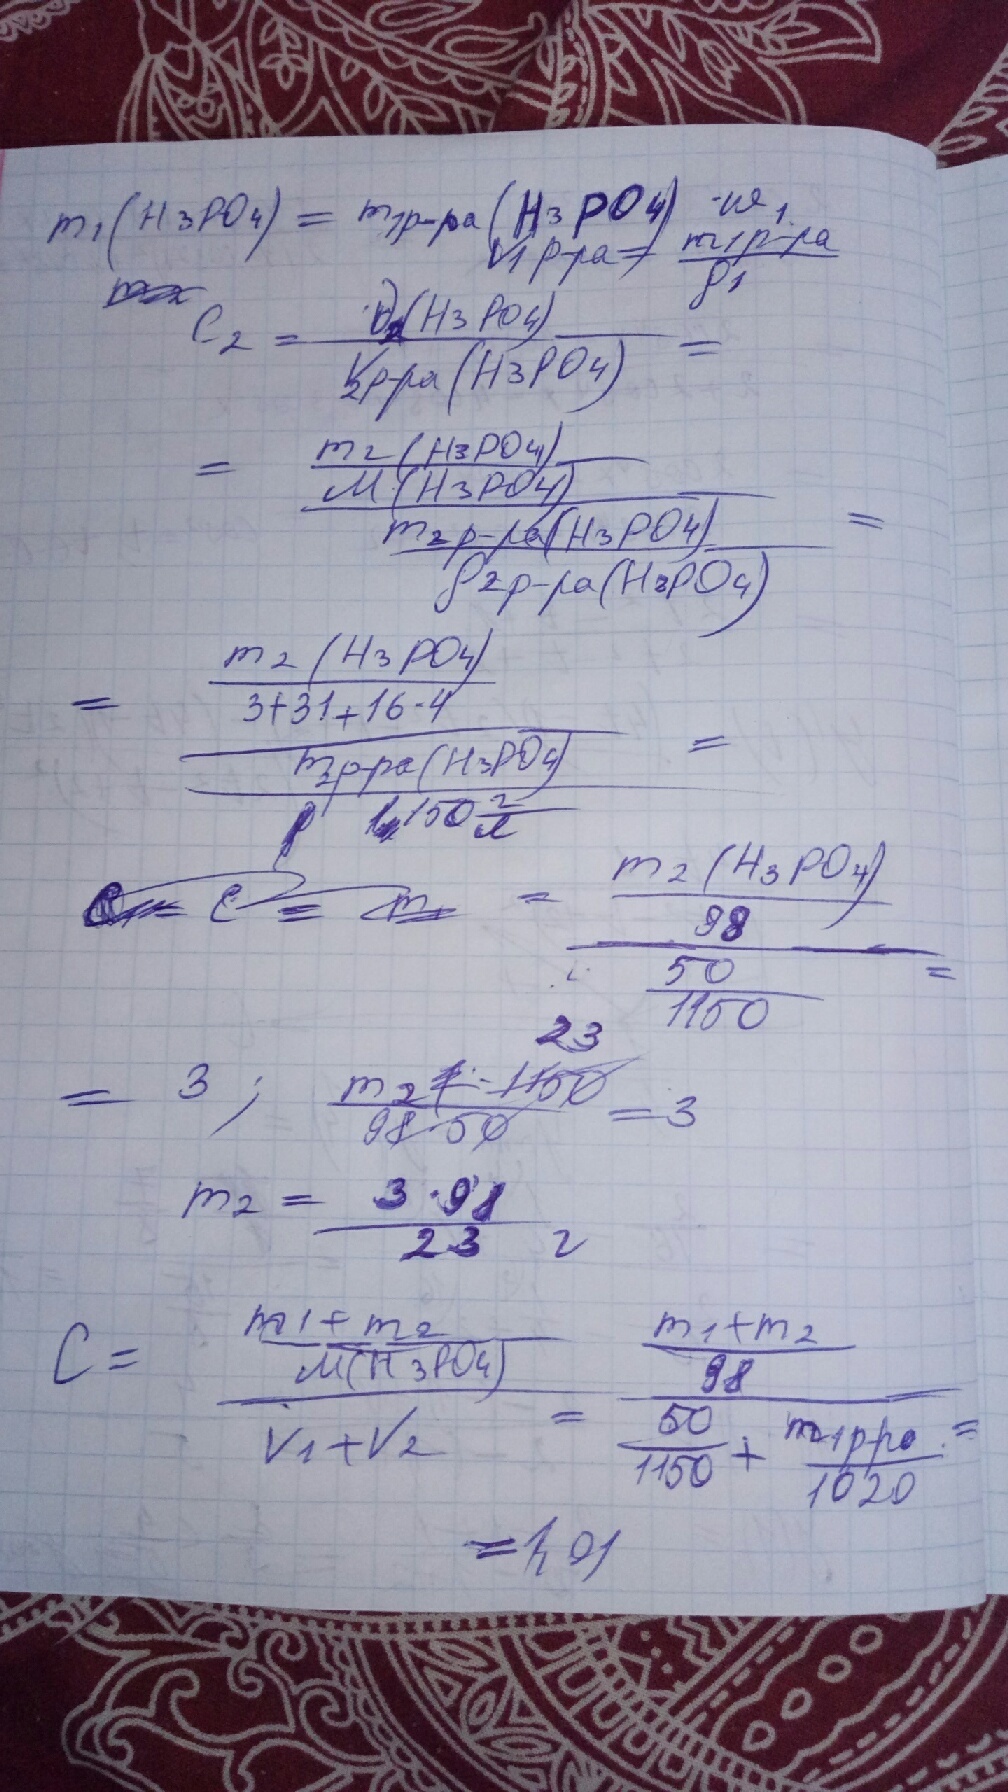 m₁(H₃PO₄) = m₁р-ра(H₃PO₄) · ω₁
V₁р-ра = m₁р-ра / ρ₁
C₂ = ν₂(H₃PO₄) / V₂р-ра(H₃PO₄) =
= (m₂(H₃PO₄) / M(H₃PO₄)) / (m₂р-ра(H₃PO₄) / ρ₂р-ра(H₃PO₄)) =
= (m₂(H₃PO₄) / 3+31+16·4) / (m₂р-ра(H₃PO₄) / 1,150 г/л) =
= (m₂(H₃PO₄) / 98) / (50 / 1150) =
23
= 3 ; m₂ · 1150 / 98·50 = 3
m₂ = 3·98 / 23 г
C = ((m₁+m₂) / M(H₃PO₄)) / (V₁+V₂) = ((m₁+m₂) / 98) / (50/1150 + m₁р-ра/1020) =
= 1,01